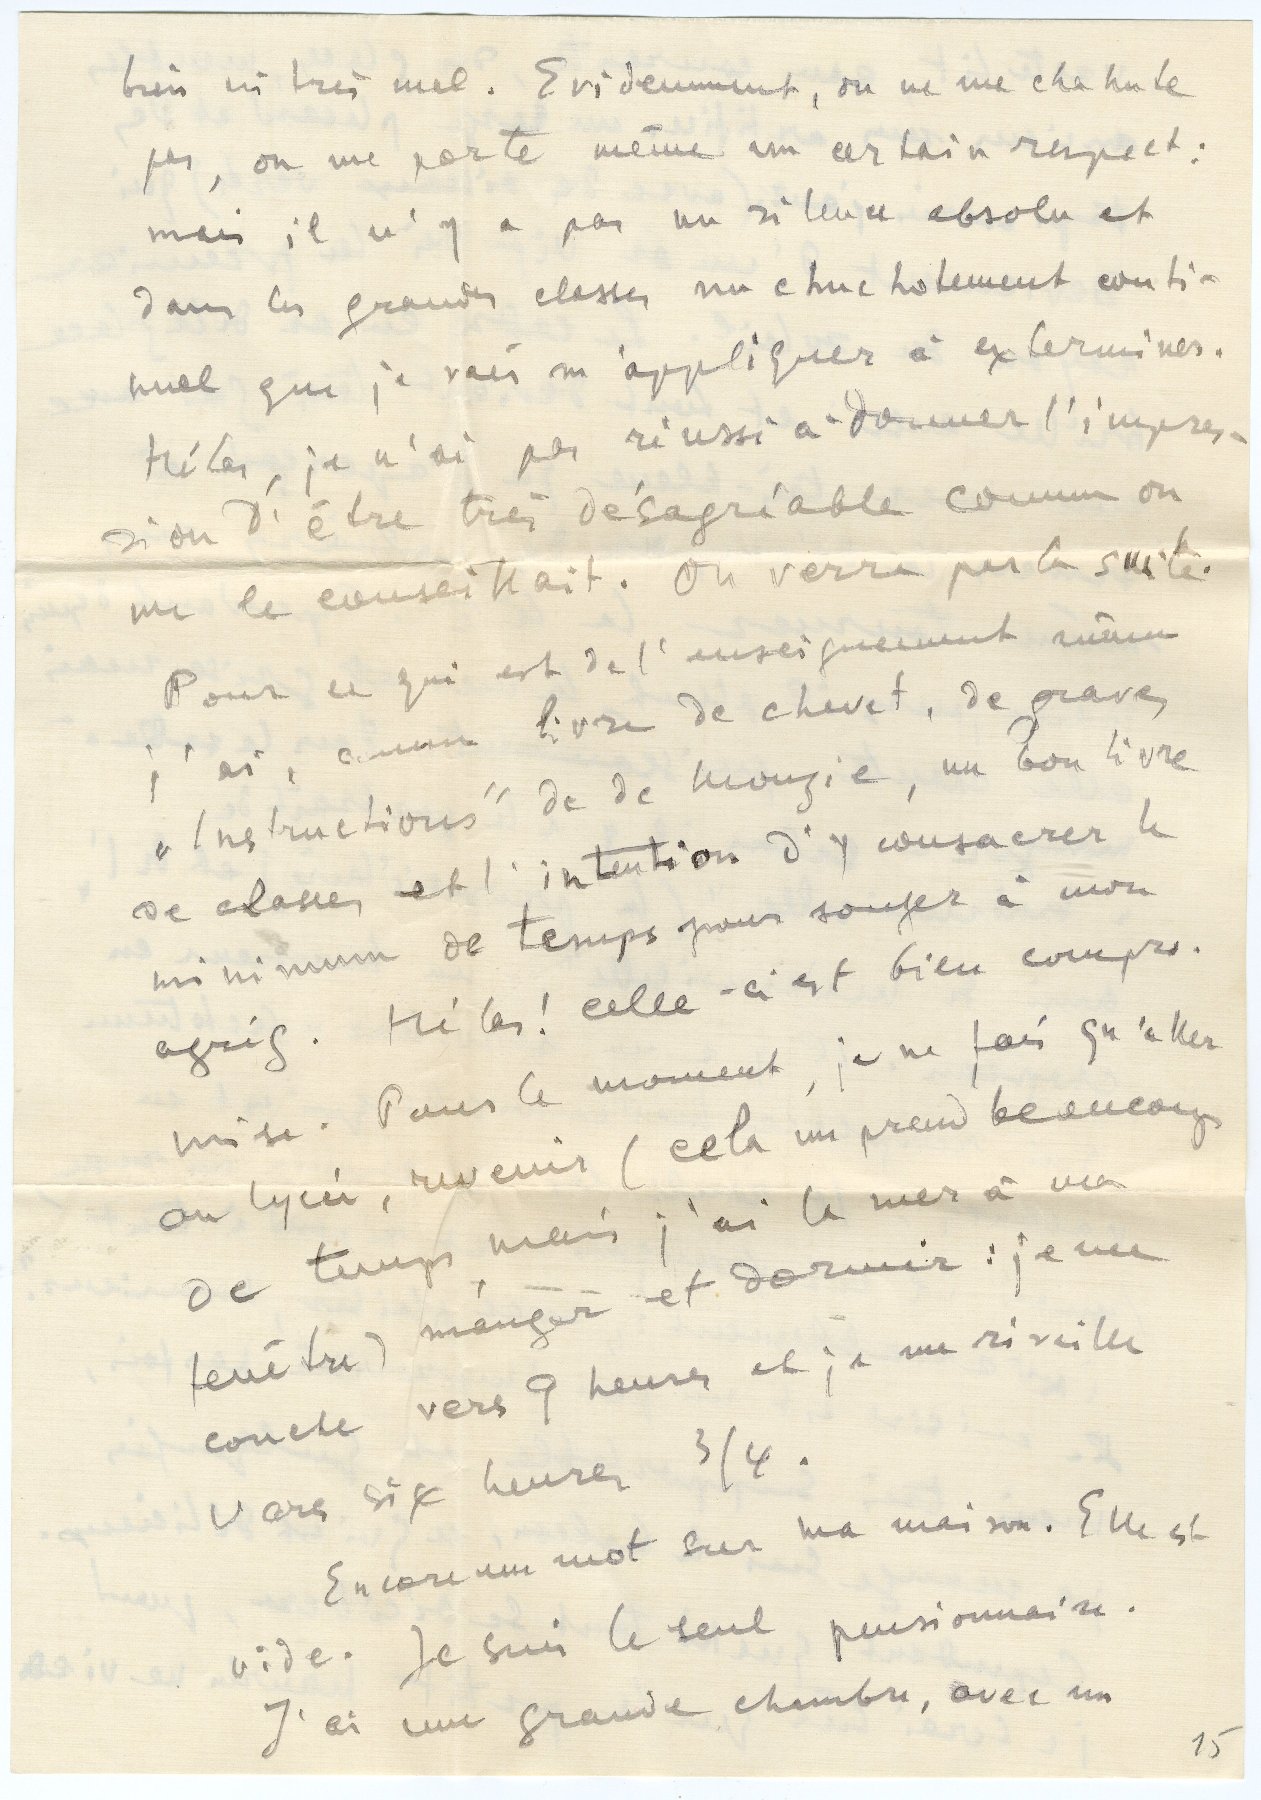 bien ni très mal. Evidemment, on ne me chahute
pas, on me porte même un certain respect:
mais il n'y a pas un silence absolu et
dans les grandes classes un chuchotement conti-
nuel que je vais m'appliquer à exterminer.
Hélas, je n'ai pas réussi à donner l'impres-
sion d'être très désagréable comme on
me le conseillait. On verra par la suite.
Pour ce qui est de l'enseignement même
j'ai, comme livre de chevet, de graves
"Instructions" de de Monzie, un bon livre
de classes et l'intention d'y consacrer le
minimum de temps pour songer à mon
agrég. Hélas! celle-ci est bien compro-
mise. Pour le moment, je ne fais qu'aller
au lycée, revenir (cela me prend beaucoup
de temps, mais j'ai la mer à ma
fenêtre) manger et dormir: je me
couche vers 9 heures et je me réveille
vers six heures 3/4.
Encore un mot sur ma maison. Elle est
vide. Je suis le seul pensionnaire.
J'ai une grande chambre, avec un
15